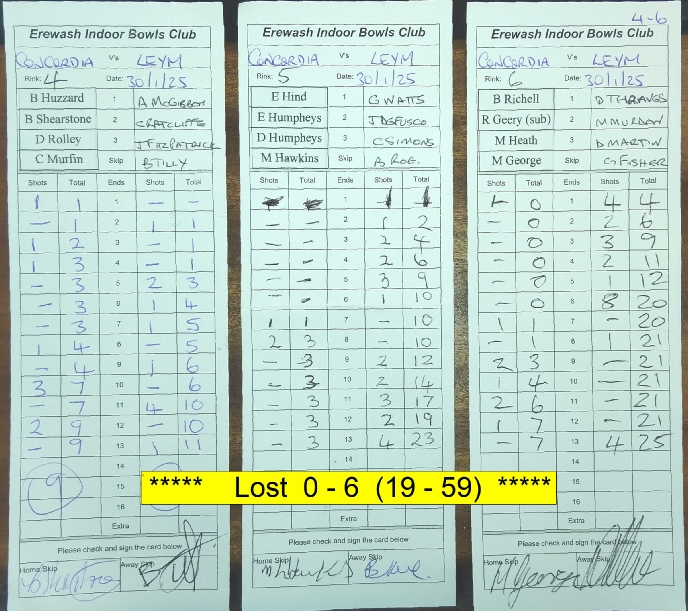 Erewash Indoor Bowls Club
CONCORDIA Vs LEYM
Rink: 4 Date: 30/1/25
B Huzzard 1 A McGIBBON
B Shearstone 2 C RATCLIFFE
D Rolley 3 J FITZPATRICK
C Murfin Skip B TILLY
Shots Total Ends Shots Total
1 1 1 - -
- 1 2 1 1
1 2 3 - 1
1 3 4 - 1
- 3 5 2 3
- 3 6 1 4
- 3 7 1 5
1 4 8 - 5
- 4 9 1 6
3 7 10 - 6
- 7 11 4 10
2 9 12 - 10
- 9 13 1 11
14
9 15
16
Extra
Please check and sign the card below
Home Skip Away Skip
Erewash Indoor Bowls Club
CONCORDIA Vs LEYM
Rink: 5 Date: 30/1/25
E Hind 1 G WATTS
E Humpheys 2
D Humpheys 3 C SIMONS
M Hawkins Skip
Shots Total Ends Shots Total
1 1 1
- - 2 1 2
- - 3 2 4
- - 4 2 6
- 5 3 9
- - 6 1 10
1 1 7 - 10
2 3 8 - 10
- 3 9 2 12
- 3 10 2 14
- 3 11 3 17
- 3 12 2 19
- 3 13 4 23
14
Extra
Please check and sign the card below
Home Skip Away Skip
4-6
Erewash Indoor Bowls Club
CONCORDIA Vs LEYM
Rink: 6 Date: 30/1/25
B Richell 1
R Geery (sub) 2 M MURDAN
M Heath 3 D MARTIN
M George Skip G FISHER
Shots Total Ends Shots Total
- 0 1 4 4
- 0 2 2 6
- 0 3 3 9
- 0 4 2 11
- 0 5 1 12
- 0 6 8 20
1 1 7 - 20
- 1 8 1 21
2 3 9 - 21
1 4 10 - 21
2 6 11 - 21
1 7 12 - 21
- 7 13 4 25
14
15
16
Extra
Please check and sign the card below
Home Skip Away Skip
***** Lost 0 - 6 (19 - 59) *****